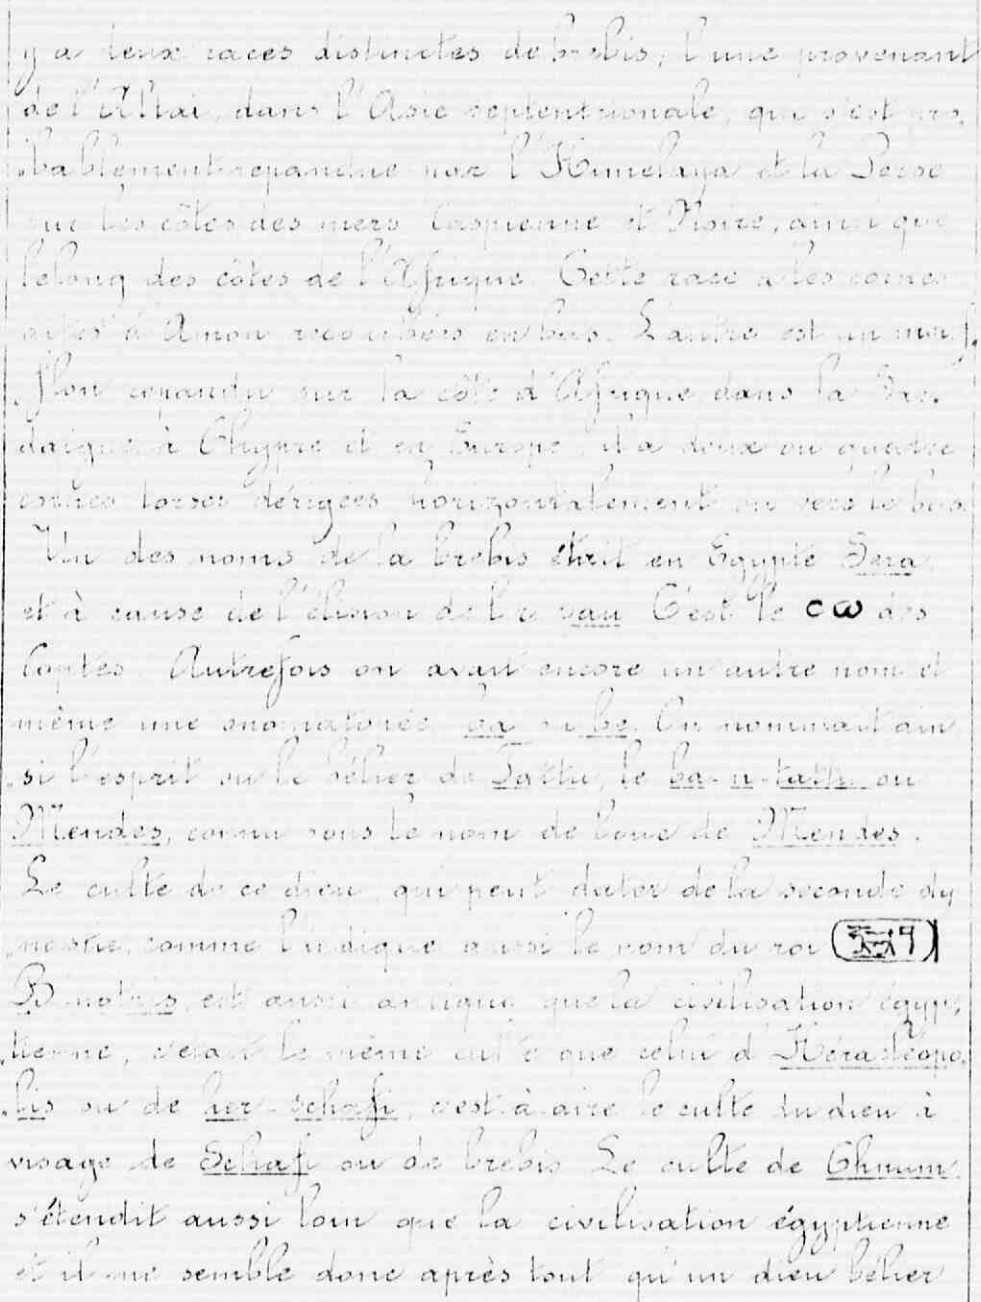 y a deux races distinctes de brebis, l'une provenant
de l'Altai, dans l'Asie septentrionale, qui s'est pro-
bablement repandue par l'Himelaya et la Perse
sur les côtes des mers Caspienne et Noire, ainsi que
le long des côtes de l'Afrique. Cette race a les cornes
dites à Amon recourbées en bas. L'autre est un mouf-
flon repandu sur la côte d'Afrique dans la Sar-
daigne à Chypre et en Europe, il a deux ou quatre
cornes torses dérigées horizontalement ou vers le bas.
Un des noms de la brebis était en Egypte Sera
et à cause de l'élision de l'r sau C'est le ⲥⲱ des
Coptes. Autrefois on avait encore un autre nom et
même une onomatopée ba ou be. On nommait ain-
si l'esprit ou le bélier de Tattu, le ba-n-tattu ou
Mendes, connu sous le nom de bouc de Mendes.
Le culte de ce dieu, qui peut dater de la seconde dy-
nastie, comme l'indique aussi le nom du roi
Binotris, est aussi antique que la civilisation égyp-
tienne, c'était le même culte que celui d'Héracléopo-
lis ou de her-schafi, c'est à dire le culte du dieu à
visage de Schafi ou de brebis Le culte de Chnum
s'étendit aussi loin que la civilisation égyptienne
et il me semble donc après tout qu'un dieu bélier